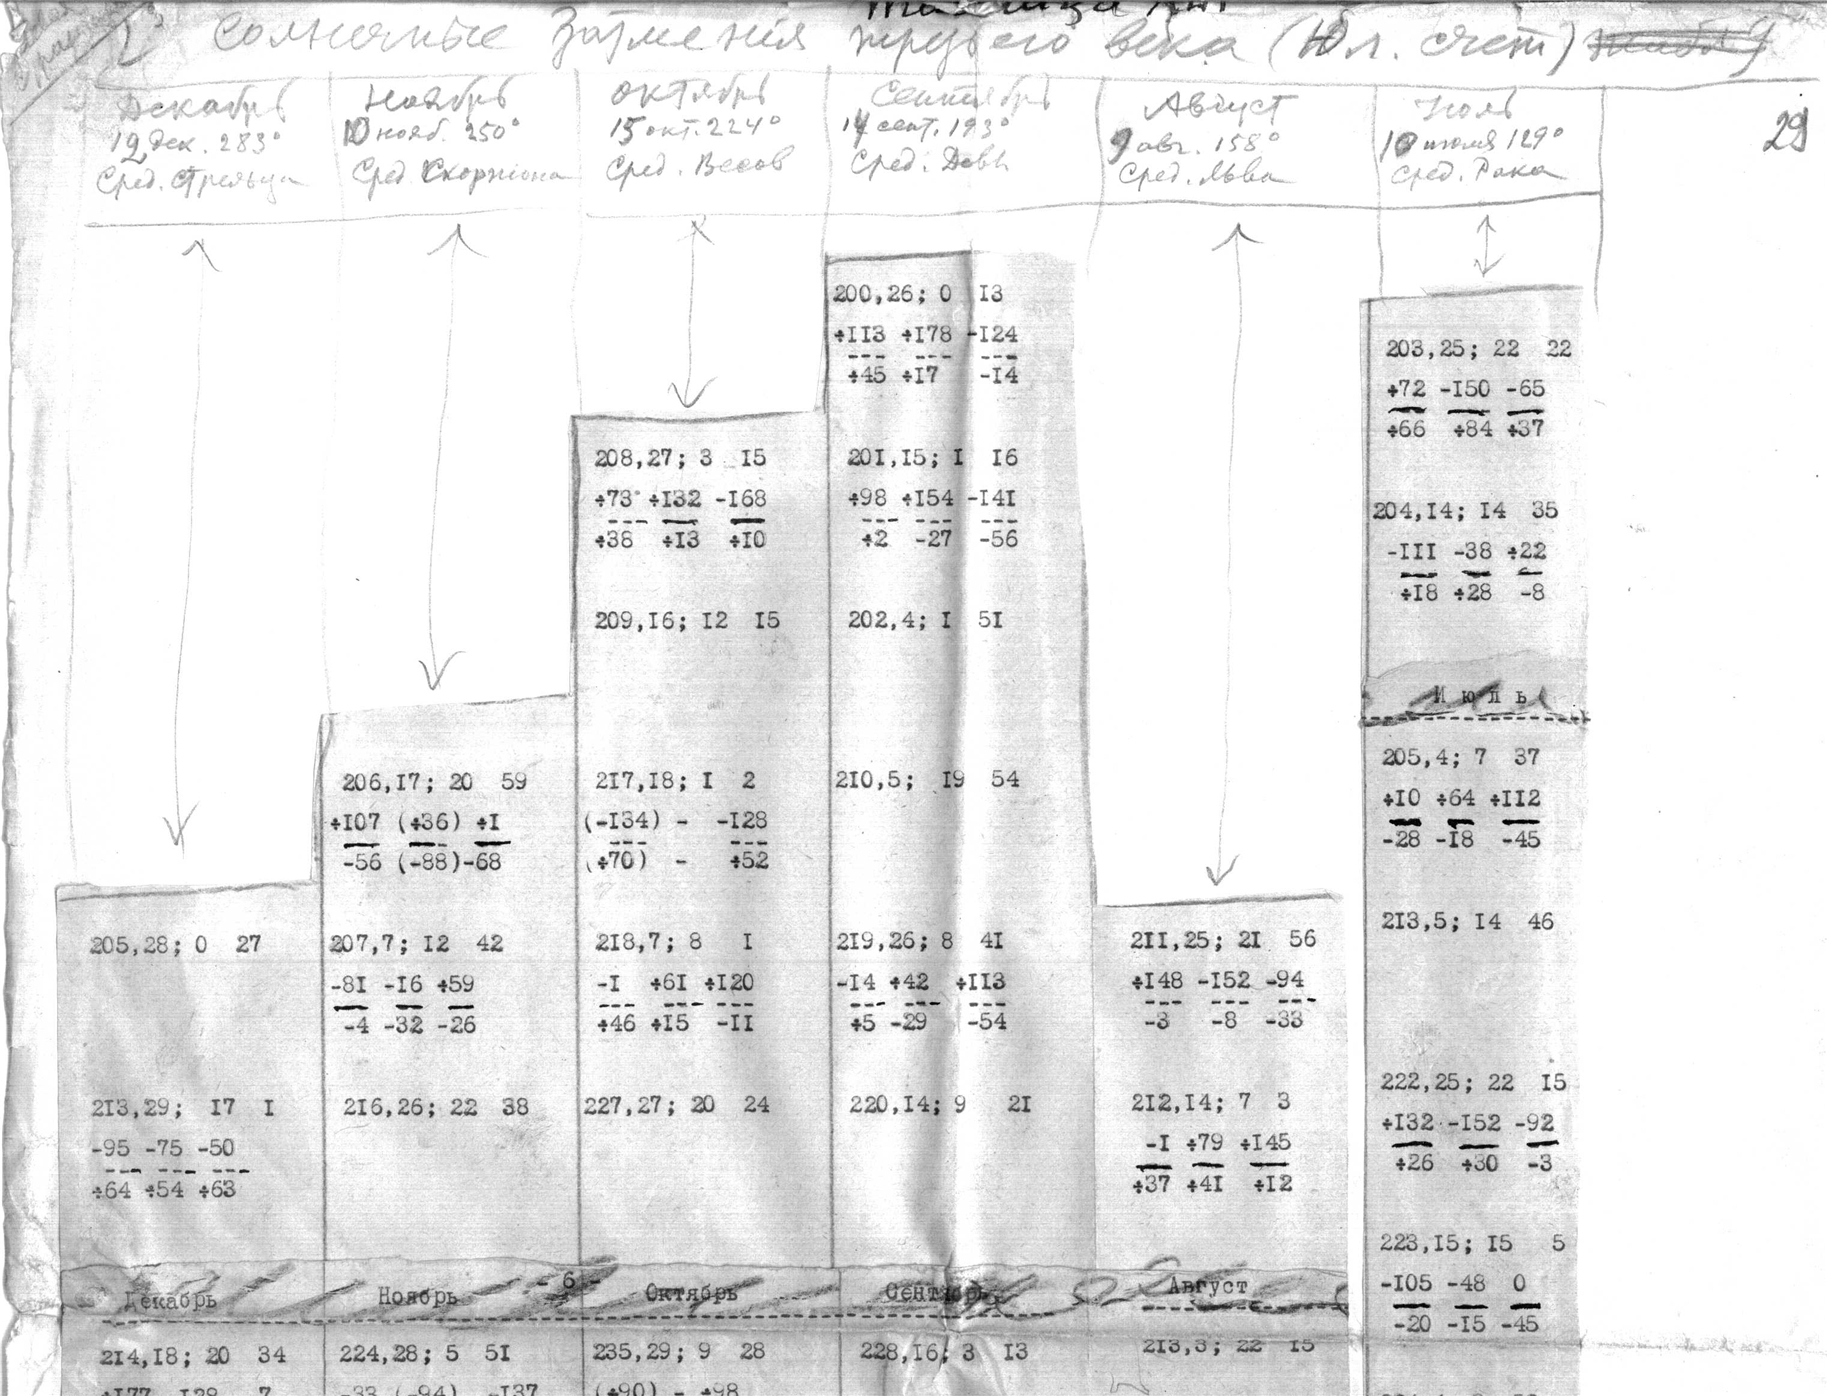 Солнечные Затмения третьего века (Юл. счет)
29
Декабрь
12 дек. 283°
Сред. Стрельца
205,28; 0 27
213,29; I7 I
-95 -75 -50
÷64 ÷54 ÷63
Декабрь
214,I8; 20 34
Ноябрь
10 нояб. 250°
Сред Скорпиона
206,I7; 20 59
÷I07 (÷36) ÷I
-56 (-88)-68
207,7; I2 42
-8I -I6 ÷59
-4 -32 -26
2I6,26; 22 38
- 6 -
Ноябрь
224,28; 5 5I
-33 (-94) -I37
Октябрь
15 окт. 224°
Сред. Весов
208,27; 3 I5
÷73 ÷I32 -I68
÷38 ÷I3 ÷I0
209,I6; I2 I5
2I7,I8; I 2
(-I34) - -I28
(÷70) - ÷52
2I8,7; 8 I
-I ÷6I ÷I20
÷46 ÷I5 -II
227,27; 20 24
Октябрь
235,29; 9 28
(÷90) - ÷98
Сентябрь
14 сент. 193°
Сред. Девы
200,26; 0 I3
÷II3 ÷I78 -I24
÷45 ÷I7 -I4
20I,I5; I I6
÷98 ÷I54 -I4I
÷2 -27 -56
202,4; I 5I
2I0,5; I9 54
2I9,26; 8 4I
-I4 ÷42 ÷II3
÷5 -29 -54
220,I4; 9 2I
Сентябрь
228,I6; 3 I3
Август
9 авг. 158°
Сред. Льва
2II,25; 2I 56
÷I48 -I52 -94
-3 -8 -33
2I2,I4; 7 3
-I ÷79 ÷I45
÷37 ÷4I ÷I2
Август
2I3,3; 22 I5
Июль
10 июля 129°
Сред. Рака
203,25; 22 22
÷72 -I50 -65
÷66 ÷84 ÷37
204,I4; I4 35
-III -38 ÷22
÷I8 ÷28 -8
Июль
205,4; 7 37
÷I0 ÷64 ÷II2
-28 -I8 -45
2I3,5; I4 46
222,25; 22 I5
÷I32 -I52 -92
÷26 ÷30 -3
223,I5; I5 5
-I05 -48 0
-20 -I5 -45